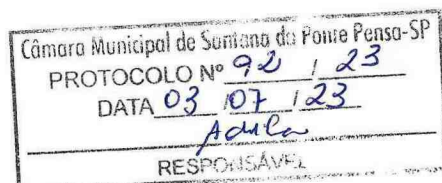 Câmara Municipal de Santana da Ponte Pensa-SP
PROTOCOLO Nº 92 / 23
DATA 03 / 07 / 23
RESPONSÁVEL